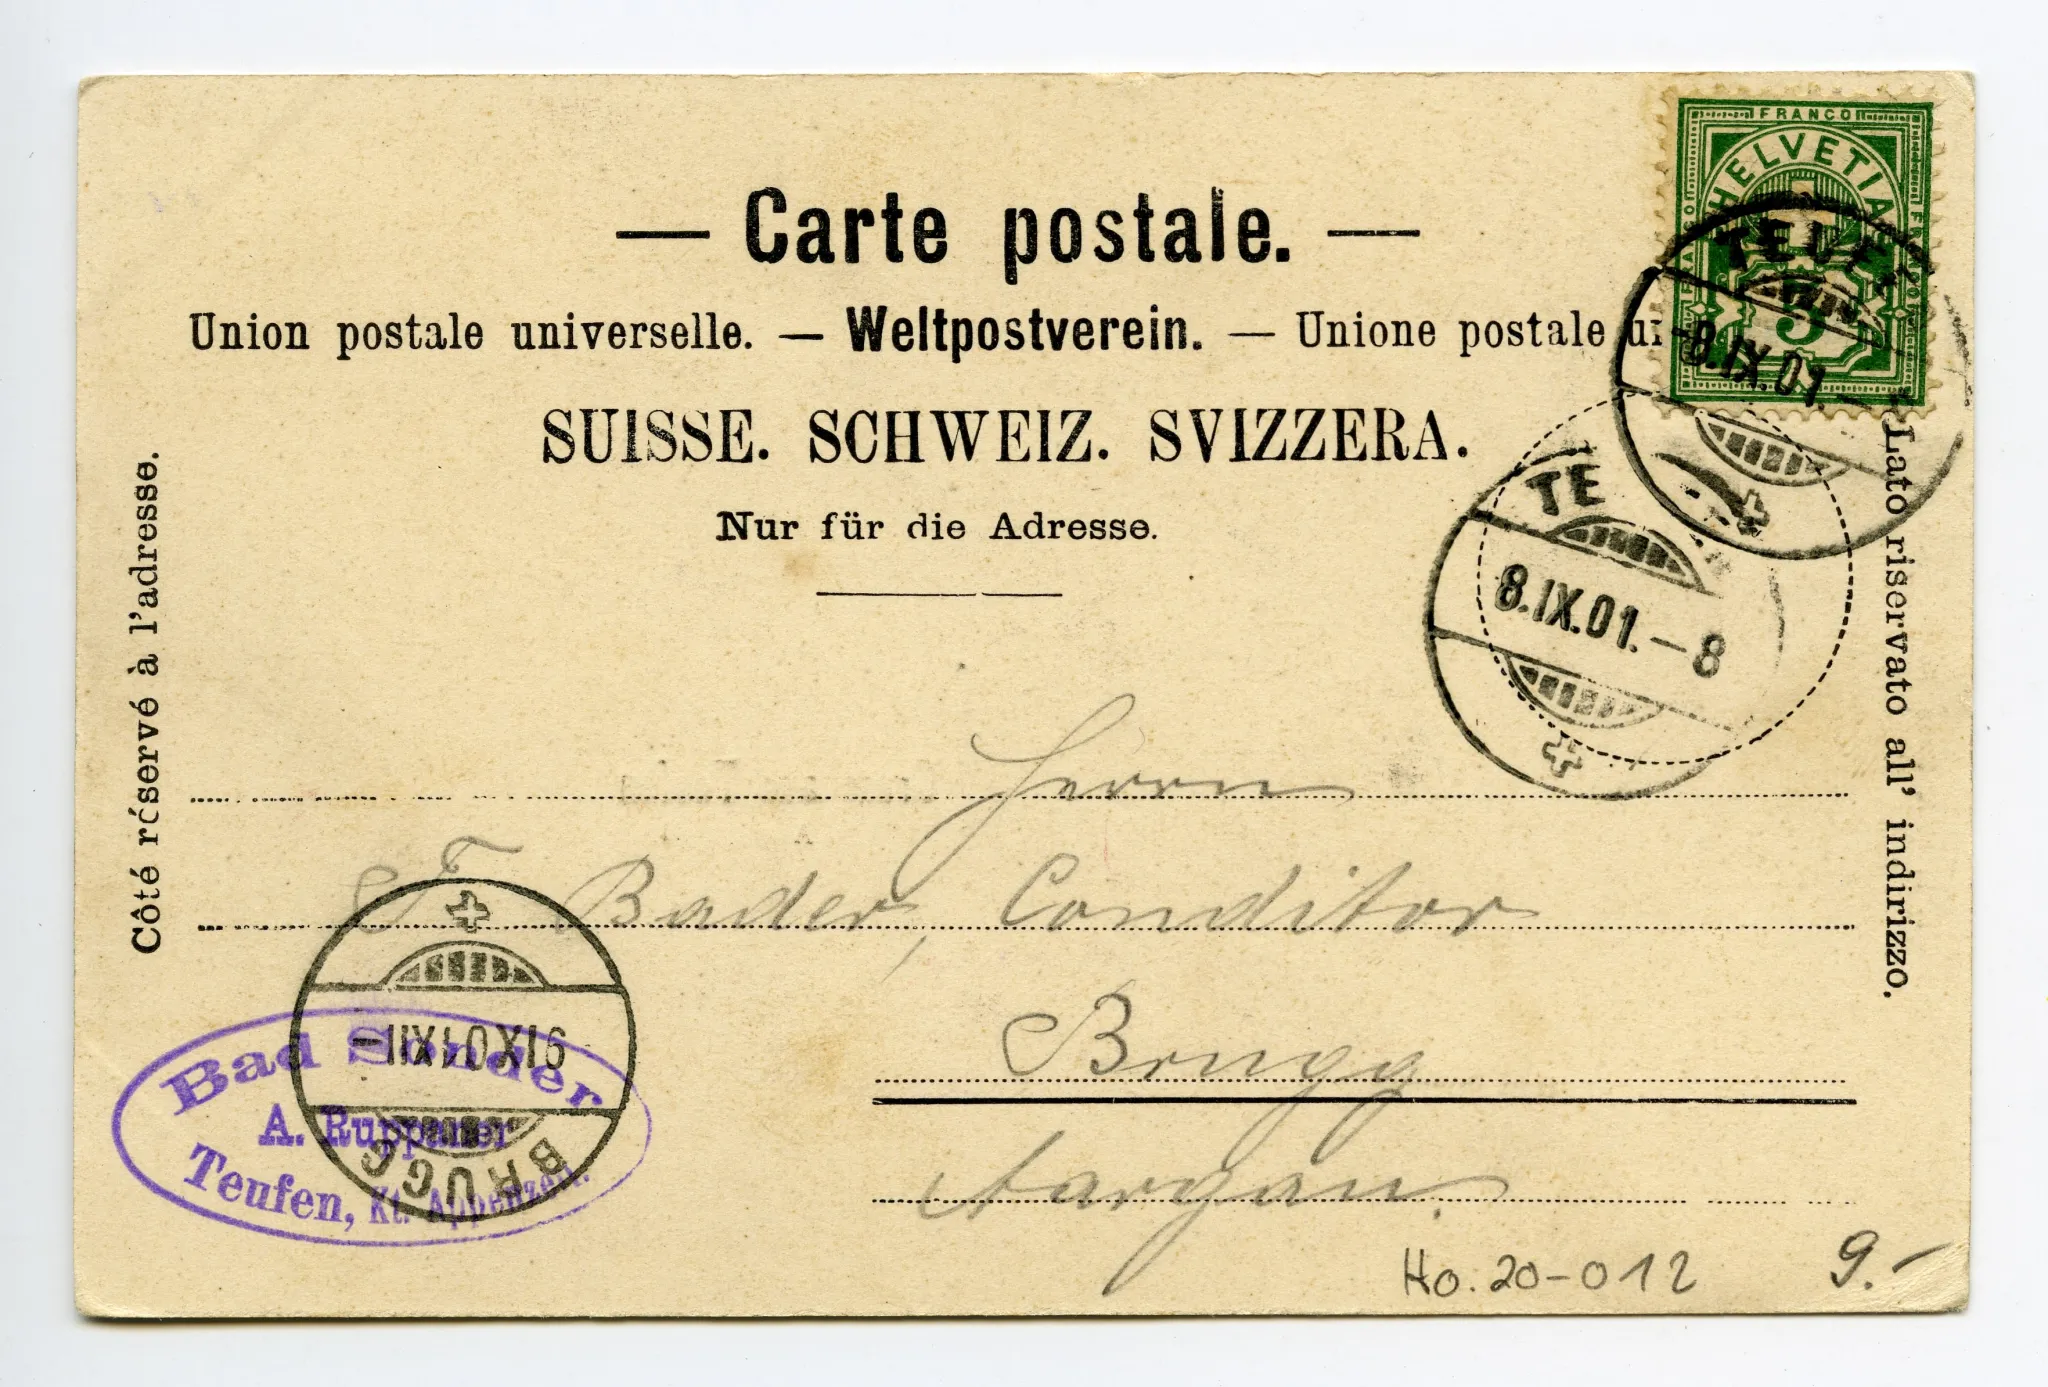 FRANCO
HELVETIA
5
— Carte postale. —
Union postale universelle. — Weltpostverein. — Unione postale
SUISSE. SCHWEIZ. SVIZZERA.
Nur für die Adresse.
Côté réservé à l'adresse.
Lato riservato all' indirizzo.
8.IX.01.–
8.IX.01.–8
Herrn
F. Bader, Conditor
Brugg
Aargau.
BRUGG
Bad Sonder
A. Ruppaner
Teufen, Kt. Appenzell.
Ho. 20-012
9.-